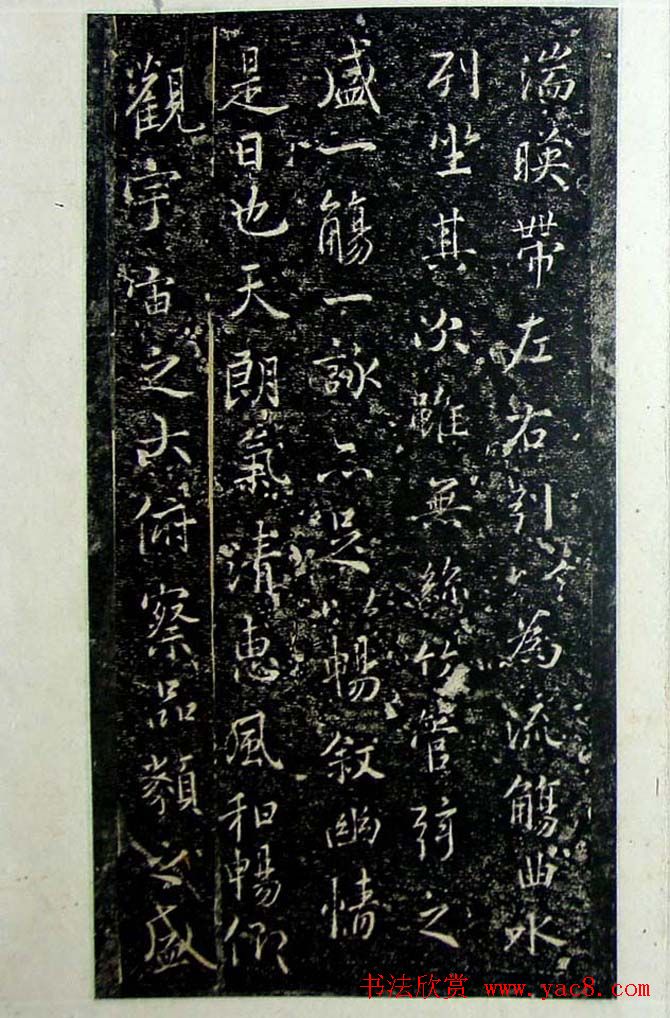 湍暎帶左右引以為流觴曲水
列坐其次雖無絲竹管弦之
盛一觴一詠亦足以暢敘幽情
是日也天朗氣清惠風和暢仰
觀宇宙之大俯察品類之盛
书法欣赏 www.yac8.com